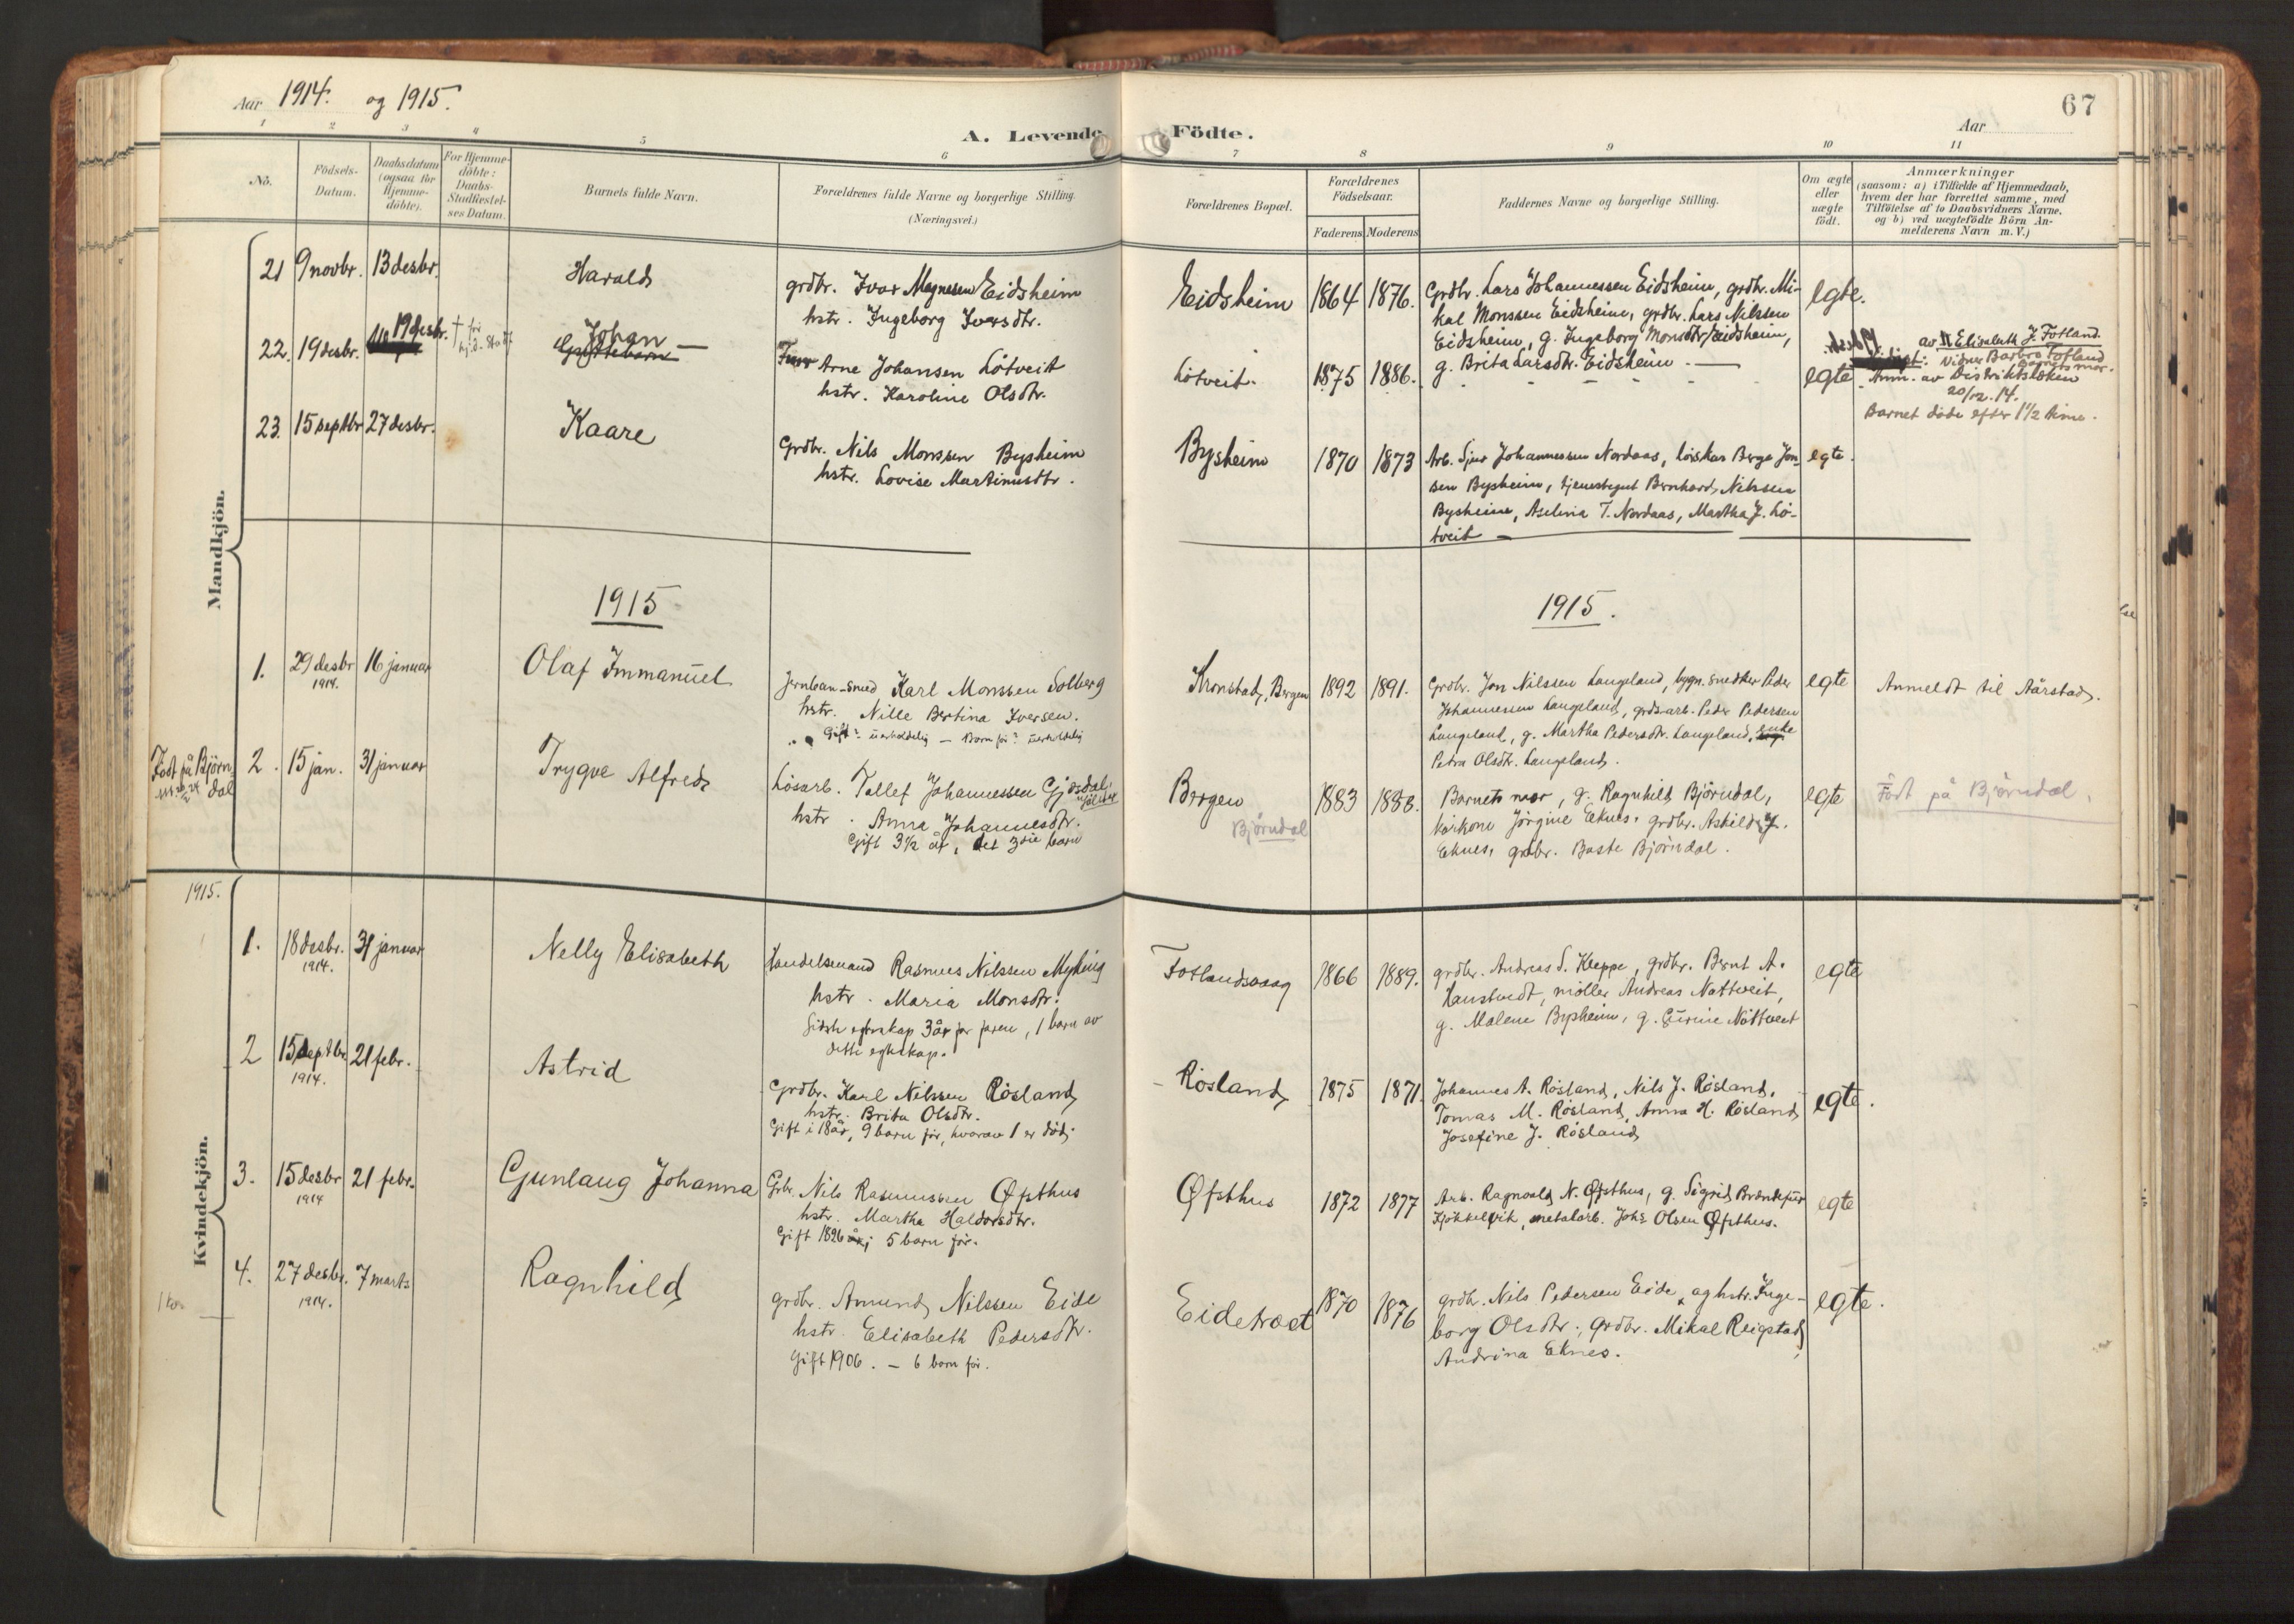 Aar 1914. og 1915.
67
A. Levende Födte.
Aar
1 2 3 4 5 6 7 8 9 10 11
No.
Födsels-
Datum.
Daabsdatum
(ogsaa for
Hjemme-
döbte).
For Hjemme-
döbte:
Daabs-
Stadfæstel-
ses Datum.
Barnets fulde Navn.
Forældrenes fulde Navne og borgerlige Stilling.
(Næringsvei.)
Forældrenes Bopæl.
Forældrenes
Födselsaar.
Faderens Moderens
Faddernes Navne og borgerlige Stilling.
Om ægte
eller
uægte
födt.
Anmærkninger
(saasom: a) i Tilfælde af Hjemmedaab,
hvem der har forrettet samme, med
Tilföielse af to Daabsvidners Navne,
og b) ved uægtefödte Börn An-
melderens Navn m. V.)
Mandkjön.
21 9 novbr. 13 desbr. Harald
grdbr. Ivar Magnesen Eidsheim
hstr. Ingeborg Iversdtr.
Eidsheim 1864 1876.
Grdbr. Lars Johannessen Eidsheim, grdbr. Mi-
kal Monssen Eidsheim, grdbr. Lars Nilssen
Eidsheim, g. Ingeborg Monsdtr. Eidsheim,
g. Brita Larsdtr. Eidsheim. —
egte.
22. 19 desbr. 19 desbr. † før
Johan —
Arne Johansen Løtveit
hstr. Karoline Olsdtr.
Løtveit. 1875 1886.
egte
av Elisabeth J. Fotland.
Vidner Barbro Fotland
Barnets mor.
Anm. av Distriktslæken
20/12. 14.
Barnet døde efter 1 1/2 time.
23. 15 septbr 27 desbr. Kaare
Grdbr. Nils Monssen Bysheim
hstr. Lovise Martinusdtr.
Bysheim 1870 1873
Arb. Sjur Johannessen Nordaas, løiskar Berge Jon-
sen Bysheim, tjenestegut Bernhard Nilssen
Bysheim, Aselina T. Nordaas, Martha J. Lø-
tveit —
egte.
1915
1915.
1. 29 desbr 16 januar
1914.
Olaf Immanuel
Jernban-smed Karl Monssen Solberg
hstr. Nille Bertina Iversen.
Gift? uerholdelig — Barn før? uerholdelig
Kronstad, Bergen 1892 1891.
Grdbr. Jon Nilssen Langeland, bygn. snedker Peder
Johannessen Langeland, grdsarb. Peder Pedersen
Langeland, g. Martha Pedersdtr. Langeland, enke
Petra Olsdtr. Langeland.
egte
Anmeldt til Aarstad.
Født på Björn-
dal
2. 15 jan. 31 januar Trygve Alfred
Løsarb. Tollef Johannessen Gjesdal
hstr. Anna Johannesdtr.
Gift 3 1/2 år, det 3die barn
Bergen 1883 1888.
Björndal
Barnets mor, g. Ragnhild Björndal,
Jörgine Eknes, grdbr. Askild J.
Eknes, grdbr. Baste Björndal.
egte
Født på Björndal.
1915.
Kvindekjön.
1. 18 desbr. 31 januar
1914.
Nelly Elisabeth
Handelsmand Rasmus Nilssen Myking
hstr. Maria Monsdtr.
Sidste egteskap 3 år for faren, 1 barn av
dette egteskap.
Fotlandsvaag 1866 1889.
grdbr. Andreas S. Kleppe, grdbr. Bernt A.
Hanstvedt, møller Andreas Nottveit,
g. Malene Bysheim, g. Gurine Nottveit
egte
2 15 septbr. 21 febr.
1914.
Astrid
Grdbr. Karl Nilssen Røsland
hstr. Brita Olsdtr.
Gift i 18 år, 9 barn før, hvorav 1 er død.
Røsland 1875 1871.
Johannes A. Røsland, Nils J. Røsland,
Tomas M. Røsland, Anna H. Røsland
Josefine J. Røsland
egte.
3. 15 desbr 21 febr.
1914
Gunlaug Johanna
Grbr. Nils Rasmussen Øfsthus
hstr. Martha Haldorsdtr.
Gift 1896; 5 barn før.
Øfsthus 1872 1877
Arb. Ragnvald N. Øfsthus, g. Sigrid
metalarb. Johs Olsen Øfsthus.
egte
4. 27 desbr. 7 marts
1914.
Ragnhild
grdbr. Amund Nilssen Eide
hstr. Elisabeth Pedersdtr.
Gift 1906. — 6 barn før.
Eidetræet 1870 1876
grdbr. Nils Pedersen Eide og hstr. Inge-
borg Olsdtr., grdbr. Mikal Reigstad,
Andrina Eknes.
egte.